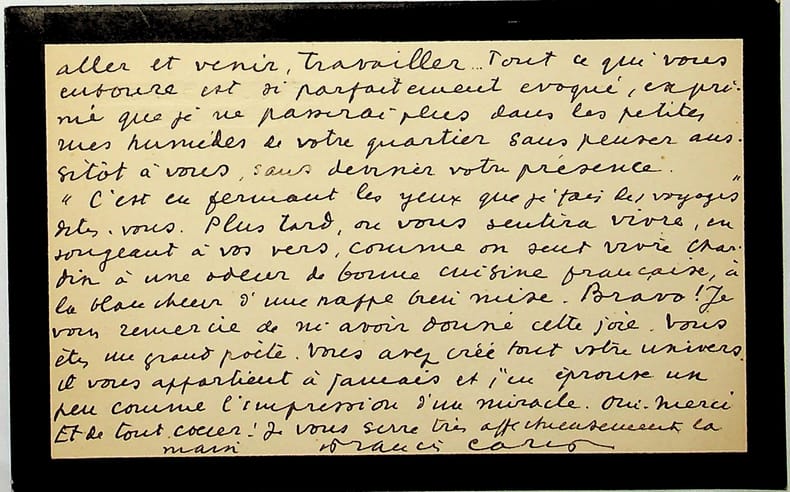 aller et venir, travailler... Tout ce qui vous
entoure est si parfaitement evoqué, expri-
mé que je ne passerai plus dans les petites
rues humides de votre quartier sans penser aus-
sitôt à vous, sans deviner votre présence.
" C'est en fermant les yeux que je fais des voyages "
dites-vous. Plus tard, on vous sentira vivre, en
songeant à vos vers, comme on sent vivre Char-
din à une odeur de bonne cuisine française, à
la blancheur d'une nappe bien mise. Bravo! Je
vous remercie de m'avoir donné cette joie. Vous
êtes un grand poète. Vous avez créé tout votre univers
il vous appartient à jamais et j'en éprouve un
peu comme l'impression d'un miracle. Oui. Merci
Et de tout coeur! Je vous serre très affectueusement la
main Francis Carco